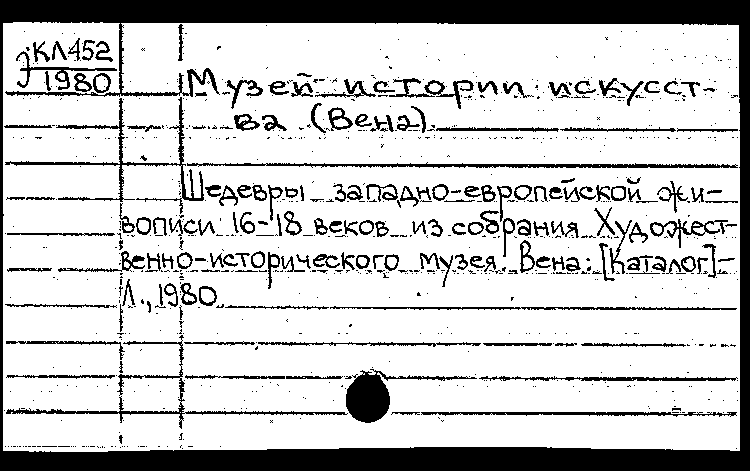 КЛ452
1980
Музей истории искусст-
ва (Вена).
Шедевры западно-европейской жи-
вописи 16-18 веков из собрания Художест-
венно-исторического музея. Вена: [Каталог]-
Л., 1980